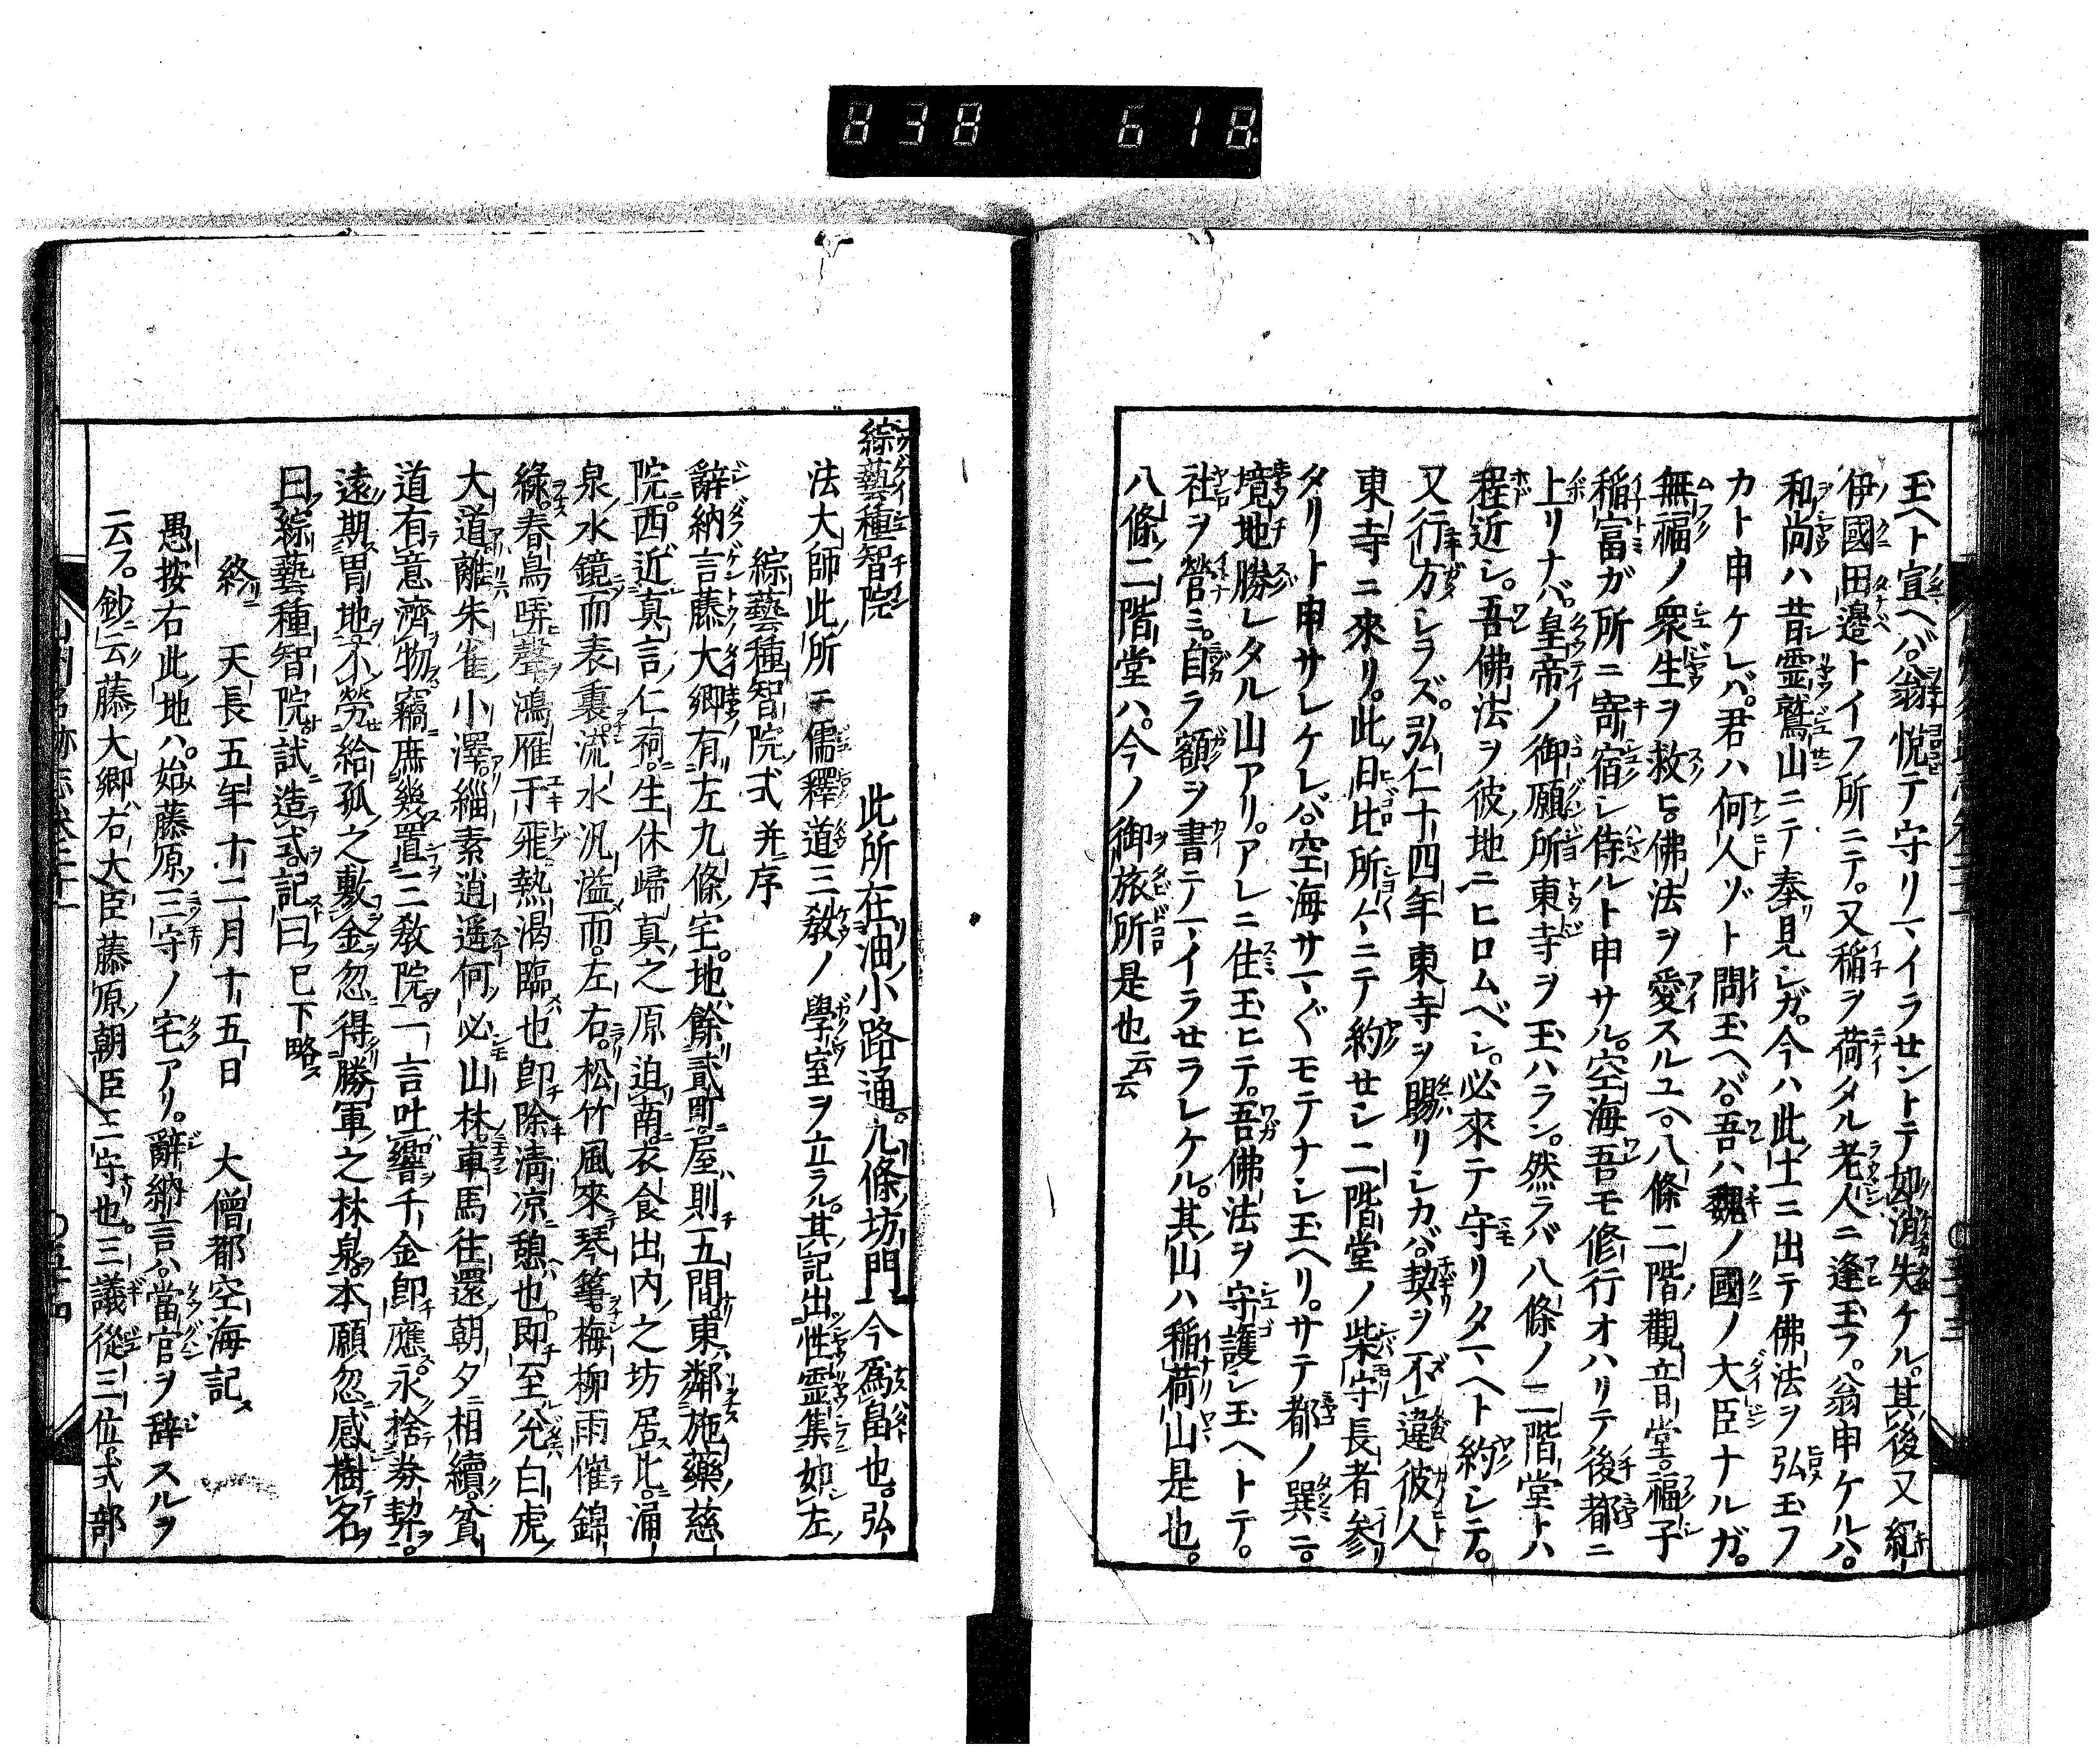 838 618
玉ヘト宣ヘバ。翁悦テ守リマイラセントテ如消失ケル。其後又紀
伊國田邊トイフ所ニテ。又稲ヲ荷タル老人ニ逢玉フ。翁申ケルハ。
和尚ハ昔霊鷲山ニテ奉見シガ。今ハ此土ニ出テ佛法ヲ弘玉フ
カト申ケレバ。君ハ何人ゾト問玉ヘバ。吾ハ魏ノ國ノ大臣ナルガ。
無福ノ衆生ヲ救ヒ。佛法ヲ愛スルユヘ。八條二階觀音堂。福子
稲富ガ所ニ寄宿シ侍ルト申サル。空海吾モ修行オハリテ後都ニ
上リナバ。皇帝ノ御願所東寺ヲ玉ハラン。然ラバ八條ノ二階堂トハ
程近シ。吾佛法ヲ彼地ニヒロムベシ。必來テ守リタマヘト約シテ。
又行方シラズ。弘仁十四年東寺ヲ賜リシカバ。契ヲ不違彼人
東寺ニ來リ。此日比所々ニテ約セシ二階堂ノ柴守長者参
タリト申サレケレバ。空海サマ〲モテナシ玉ヘリ。サテ都ノ巽ニ。
境地勝レタル山アリ。アレニ住玉ヒテ。吾佛法ヲ守護シ玉ヘトテ。
社ヲ營ミ。自ラ額ヲ書テマイラセラレケル。其山ハ稲荷山是也。
八條二階堂ハ。今ノ御旅所是也云云
綜藝種智院　此所在油小路通。九條坊門今爲畠也。弘
法大師此所ニ儒釋道三教ノ學室ヲ立ラル。其記出性霊集如左
綜藝種智院式并序
辭納言藤大卿有左九條宅。地餘貳町。屋則五間東鄰施藥慈
院。西近真言仁祠。生休歸真之原迫南。衣食出内之坊居北。涌
泉水鏡而表裏。流水汎溢而。左右。松竹風來琴箏。梅柳雨催錦
綠。春鳥哢聲鴻雁于飛熱渇臨也卽除清凉憩也即至兊白虎
大道離朱雀小澤緇素逍遥何必山林車馬往還朝夕相續。貧
道有意濟物竊庶幾置三教院一言吐響千金卽應。永捨券契。
遠期冑地不勞給孤之敷金忽得勝軍之林泉。本願忽感樹名
曰綜藝種智院。試造式。記曰巳下略
終　天長五年十二月十五日　大僧都空海記
愚按右此地ハ。始藤原三守ノ宅アリ。辭納言ハ。當官ヲ辞スルヲ
云フ。鈔云藤大卿右大臣藤原朝臣三守也。三議從三位。式部